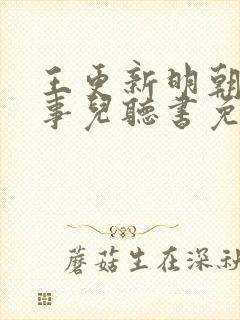 王更新明朝
事兒聽書免
蘑菇生在深秋